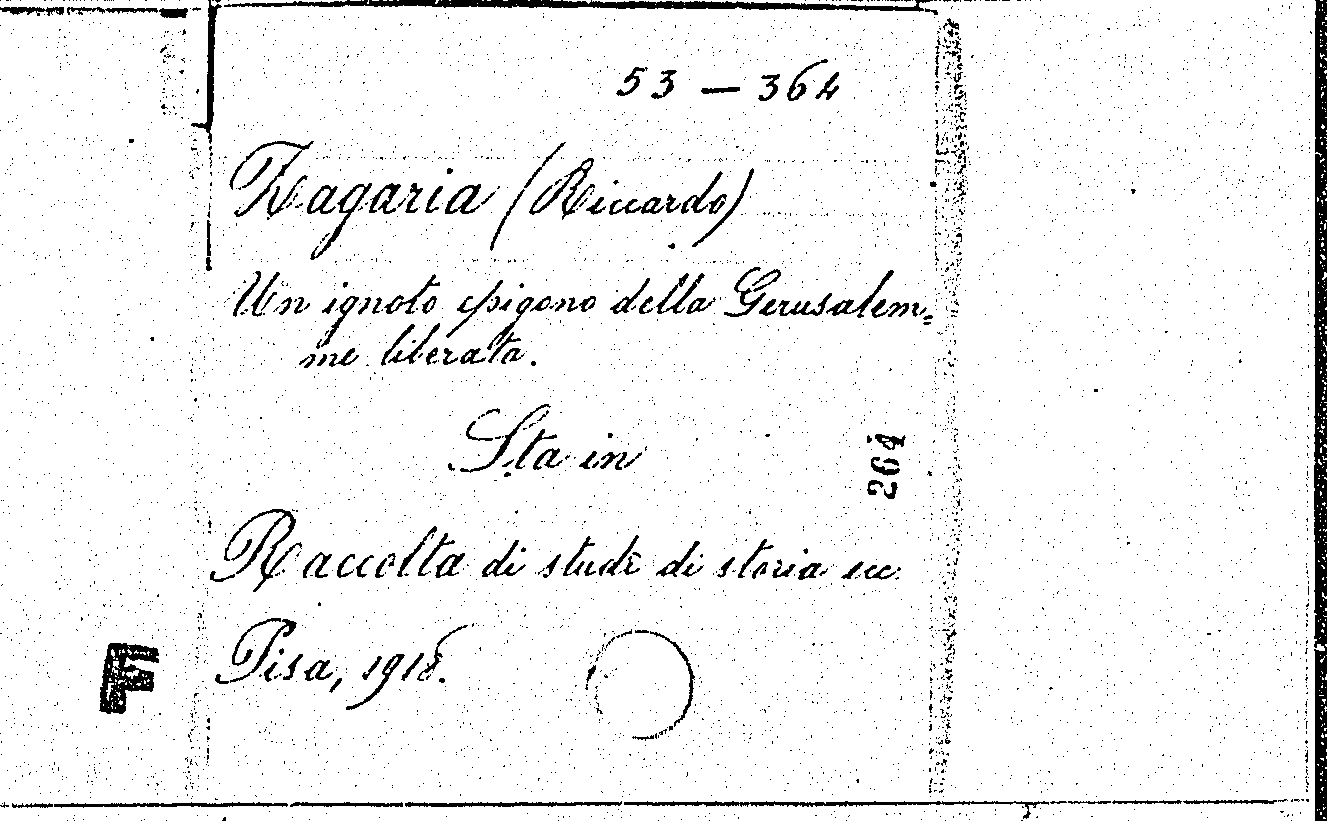 53 — 364
Zagaria (Riccardo)
Un ignoto epigono della Gerusalem=
me liberata.
Sta in
264
Raccolta di studî di storia ecc.
Pisa, 1918.
F